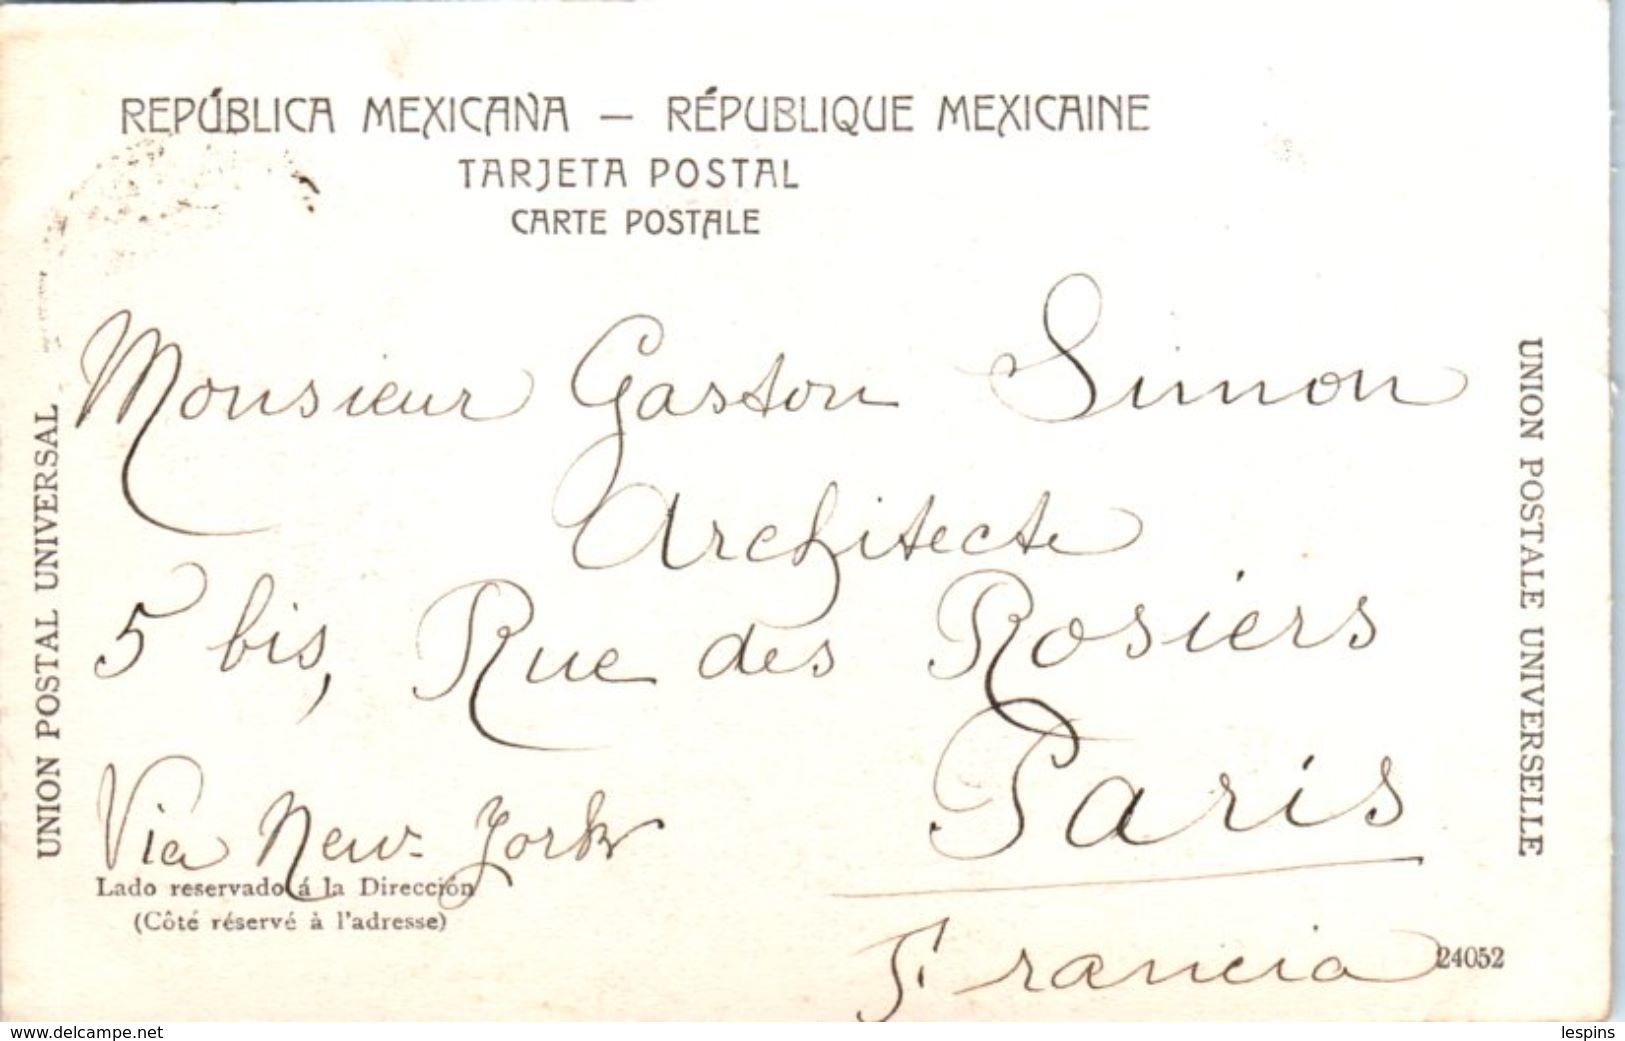 REPÚBLICA MEXICANA — RÉPUBLIQUE MEXICAINE
TARJETA POSTAL
CARTE POSTALE
UNION POSTAL UNIVERSAL
UNION POSTALE UNIVERSELLE
Monsieur Gaston Simon
Architecte
5 bis, Rue des Rosiers
Paris
Via New-York
Francia
Lado reservado á la Dirección
(Côté réservé à l'adresse)
24052
www.delcampe.net
lespins